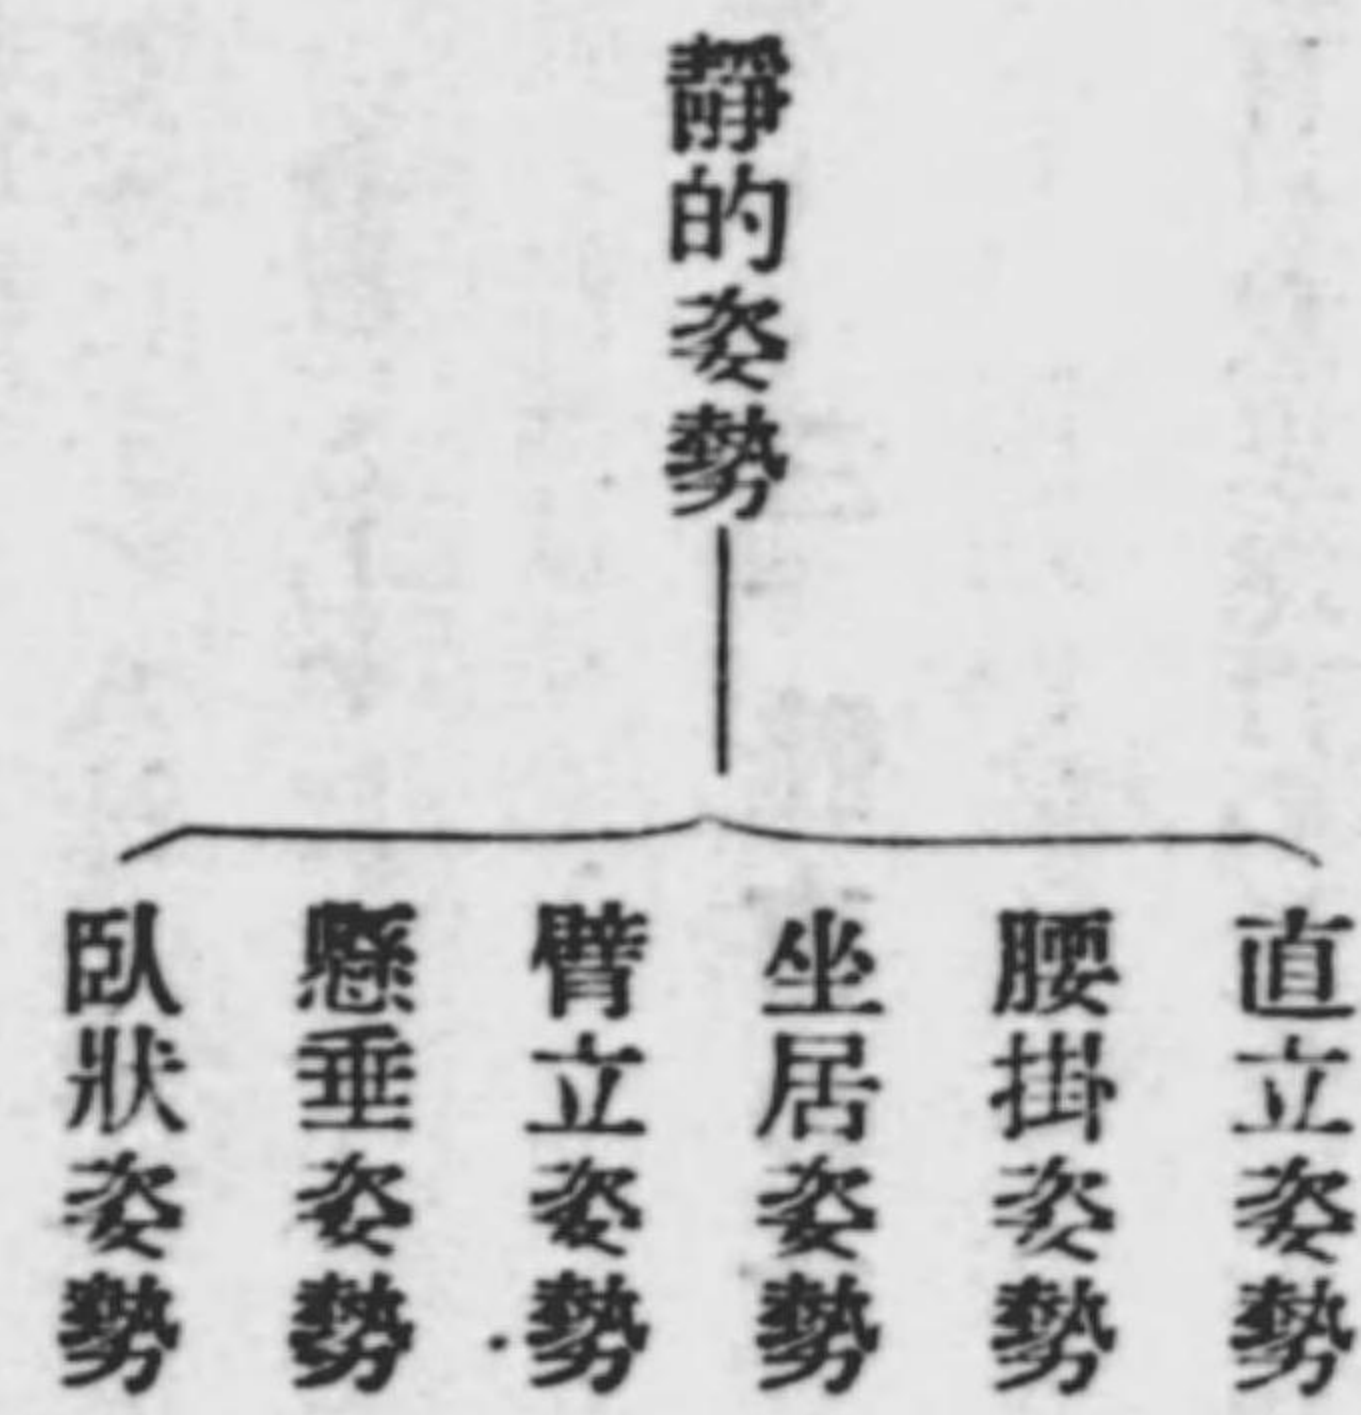 靜的姿勢
直立姿勢
腰掛姿勢
坐居姿勢
臂立姿勢
懸垂姿勢
臥狀姿勢